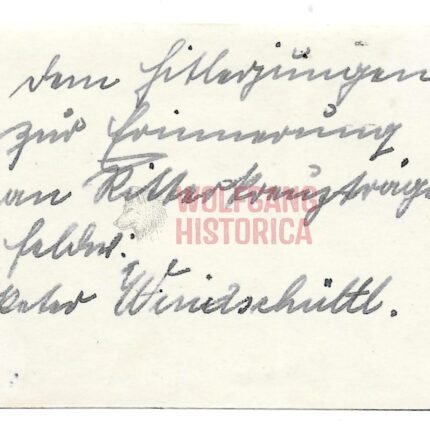 dem Hitlerjungen
zur Erinnerung
an Ritterkreuzträge
Feldw.
Peter Windschüttl.
WOLFGANG
HISTORICA